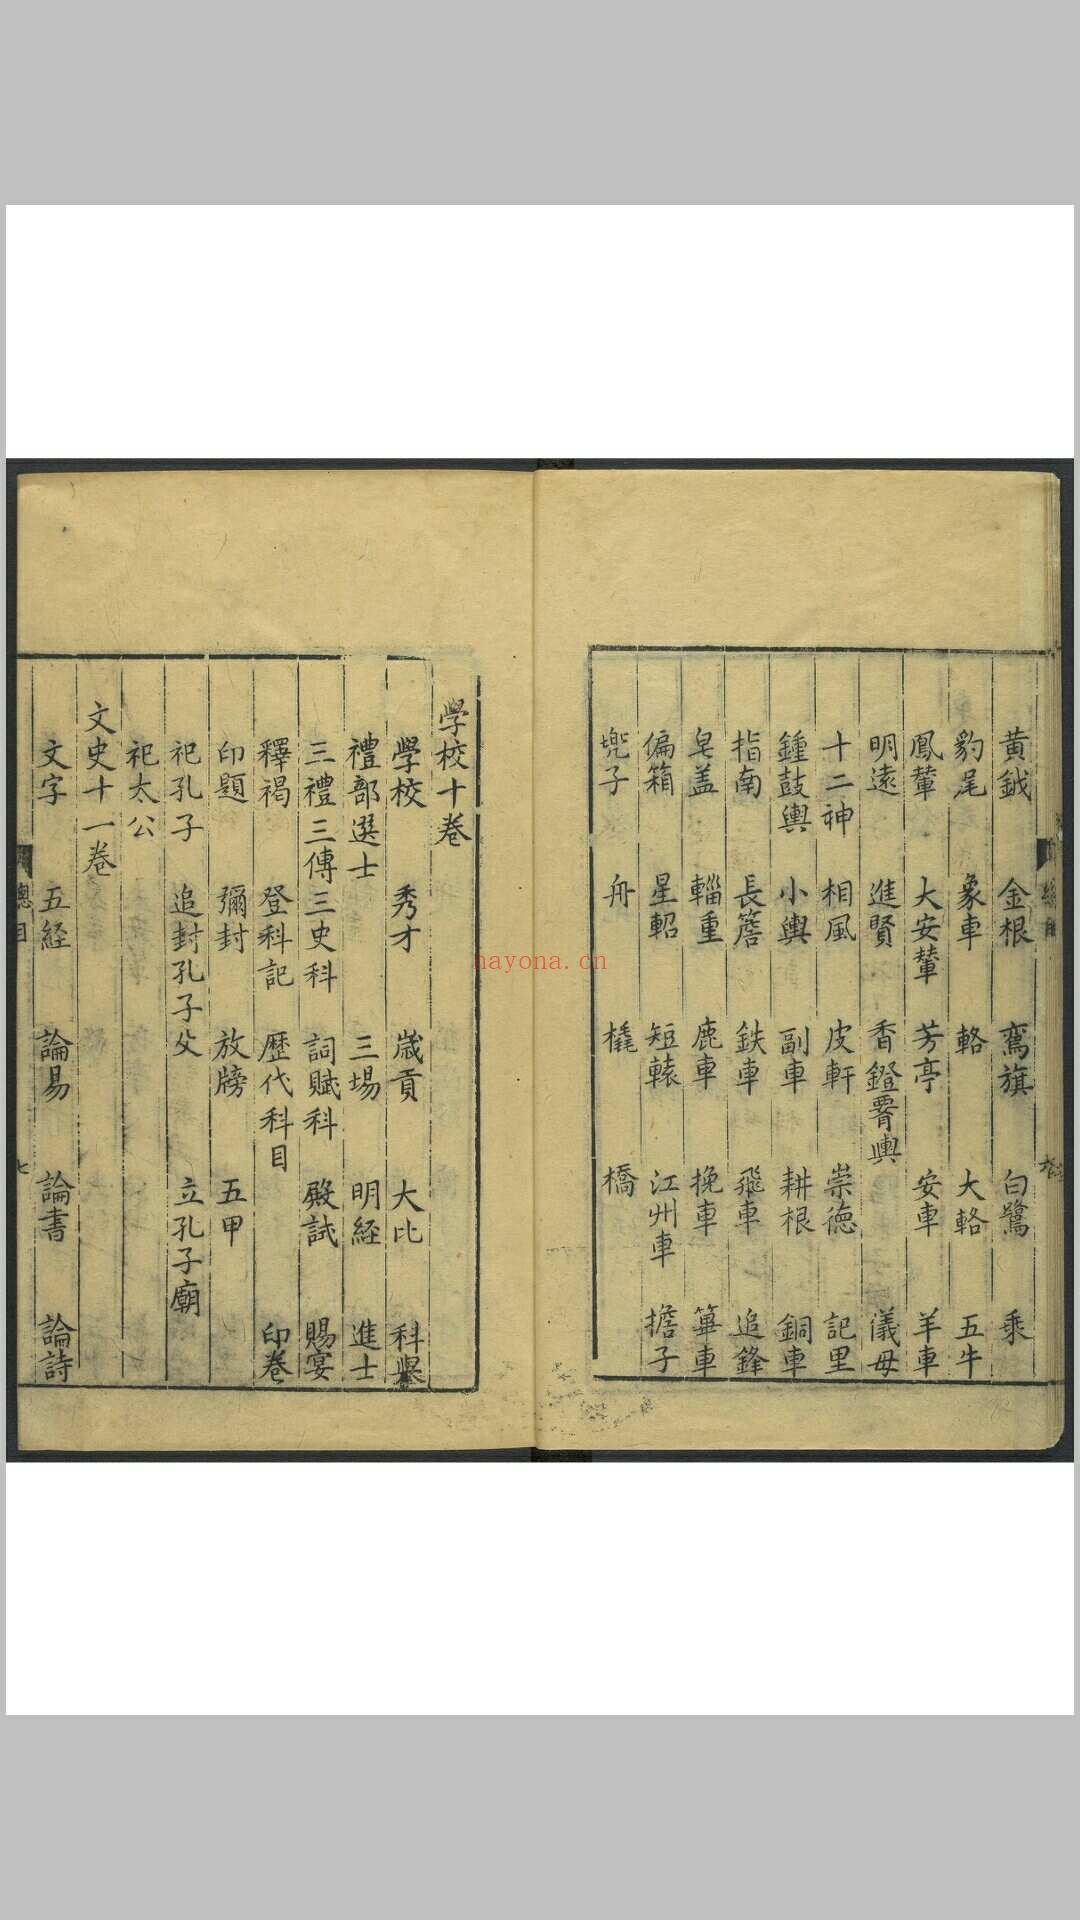 黄鉞 金根 鸞旗 白鷺 乘
豹尾 象車 輅 大輅 五牛
鳳輦 大安輦 芳亭 安車 羊車
明遠 進賢 香鐙 輿 儀毋
十二神 相風 皮軒 崇德 記里
鍾鼓輿 小輿 副車 耕根 銅車
指南 長簷 鉄車 飛車 追鋒
皂盖 輜重 鹿車 挽車 車
偏箱 星軺 短轅 江州車 擔子
兠子 舟 橇 橋
學校十卷
學校 秀才 歲貢 大比 科舉
禮部選士 三場 明經 進士
三禮三傳三史科 詞賦科 殿試 賜宴
釋褐 登科記 歷代科目 印卷
印題 彌封 放牓 五甲
祀孔子 追封孔子父 立孔子廟
祀太公
文史十一卷
文字 五經 論易 論書 論詩
總目
七
nayona.cn